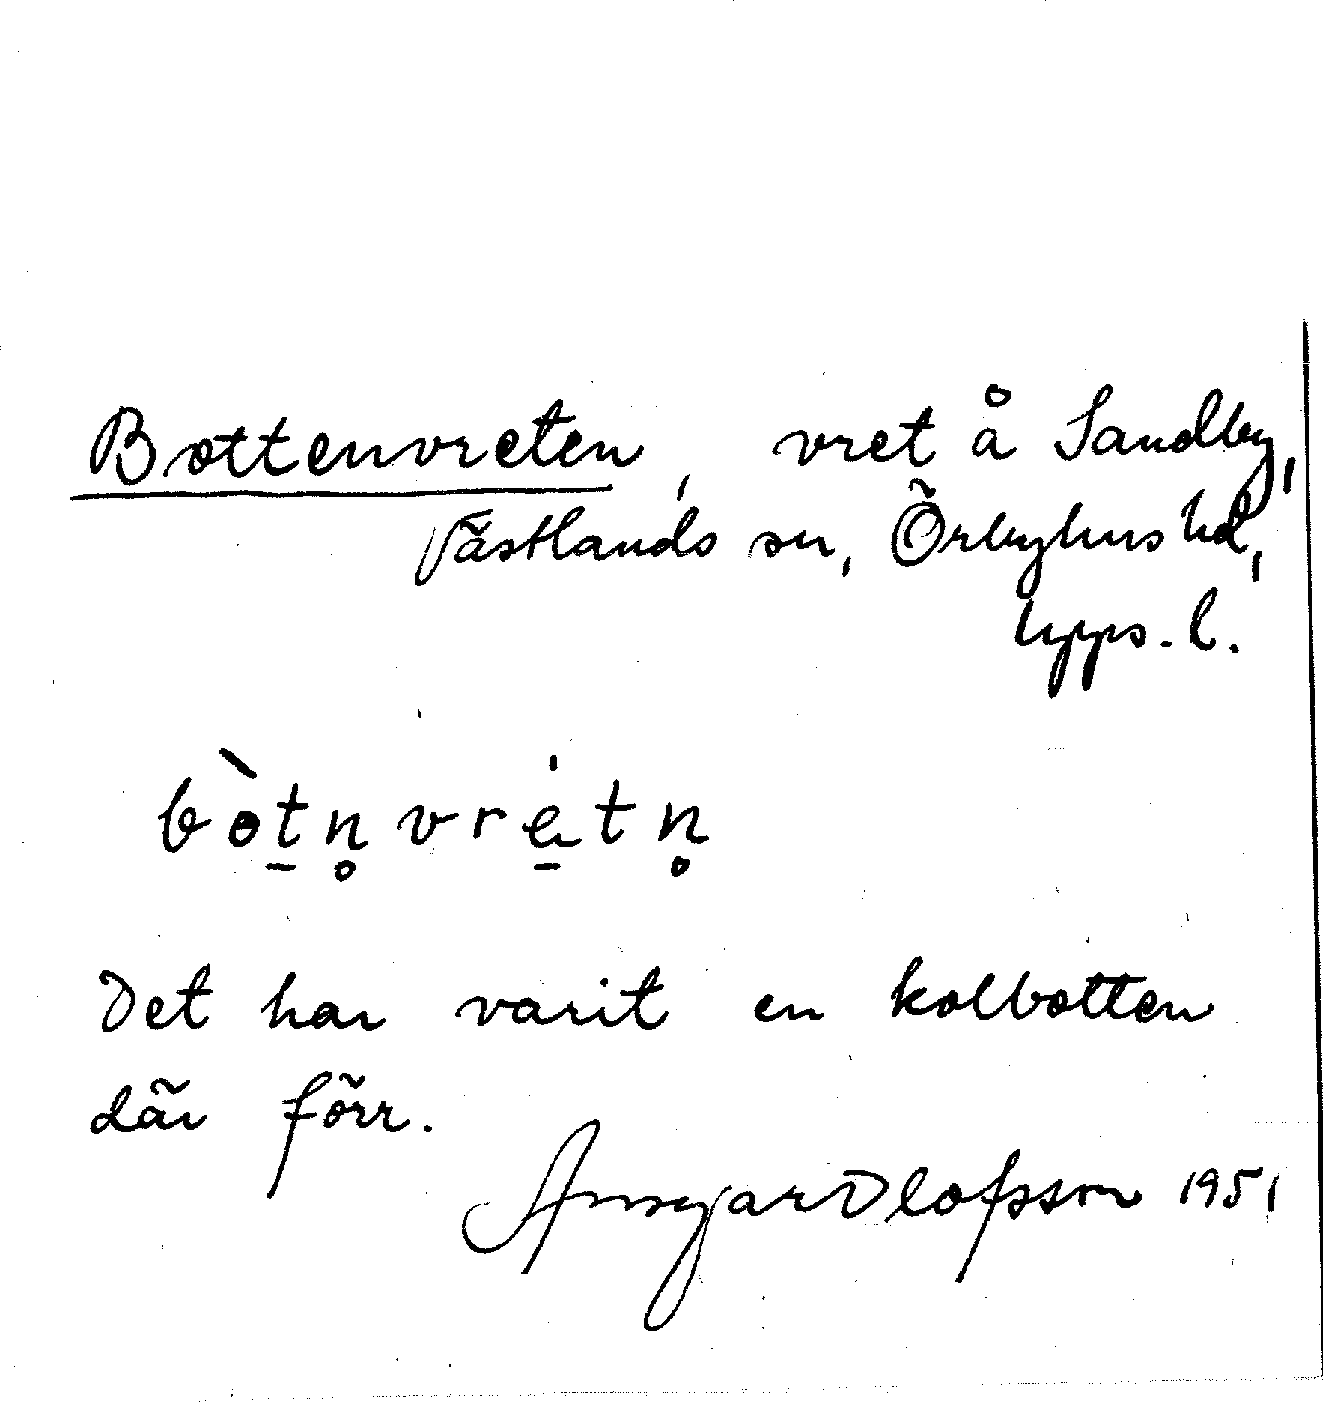 Bottenvreten, vret å Sandby,
Västlands sn, Örbyhus hd,
Upps. l.
bòt̲n̥vré̲tn̥
Det har varit en kolbotten
där förr.
Ansgar Olofsson 1951